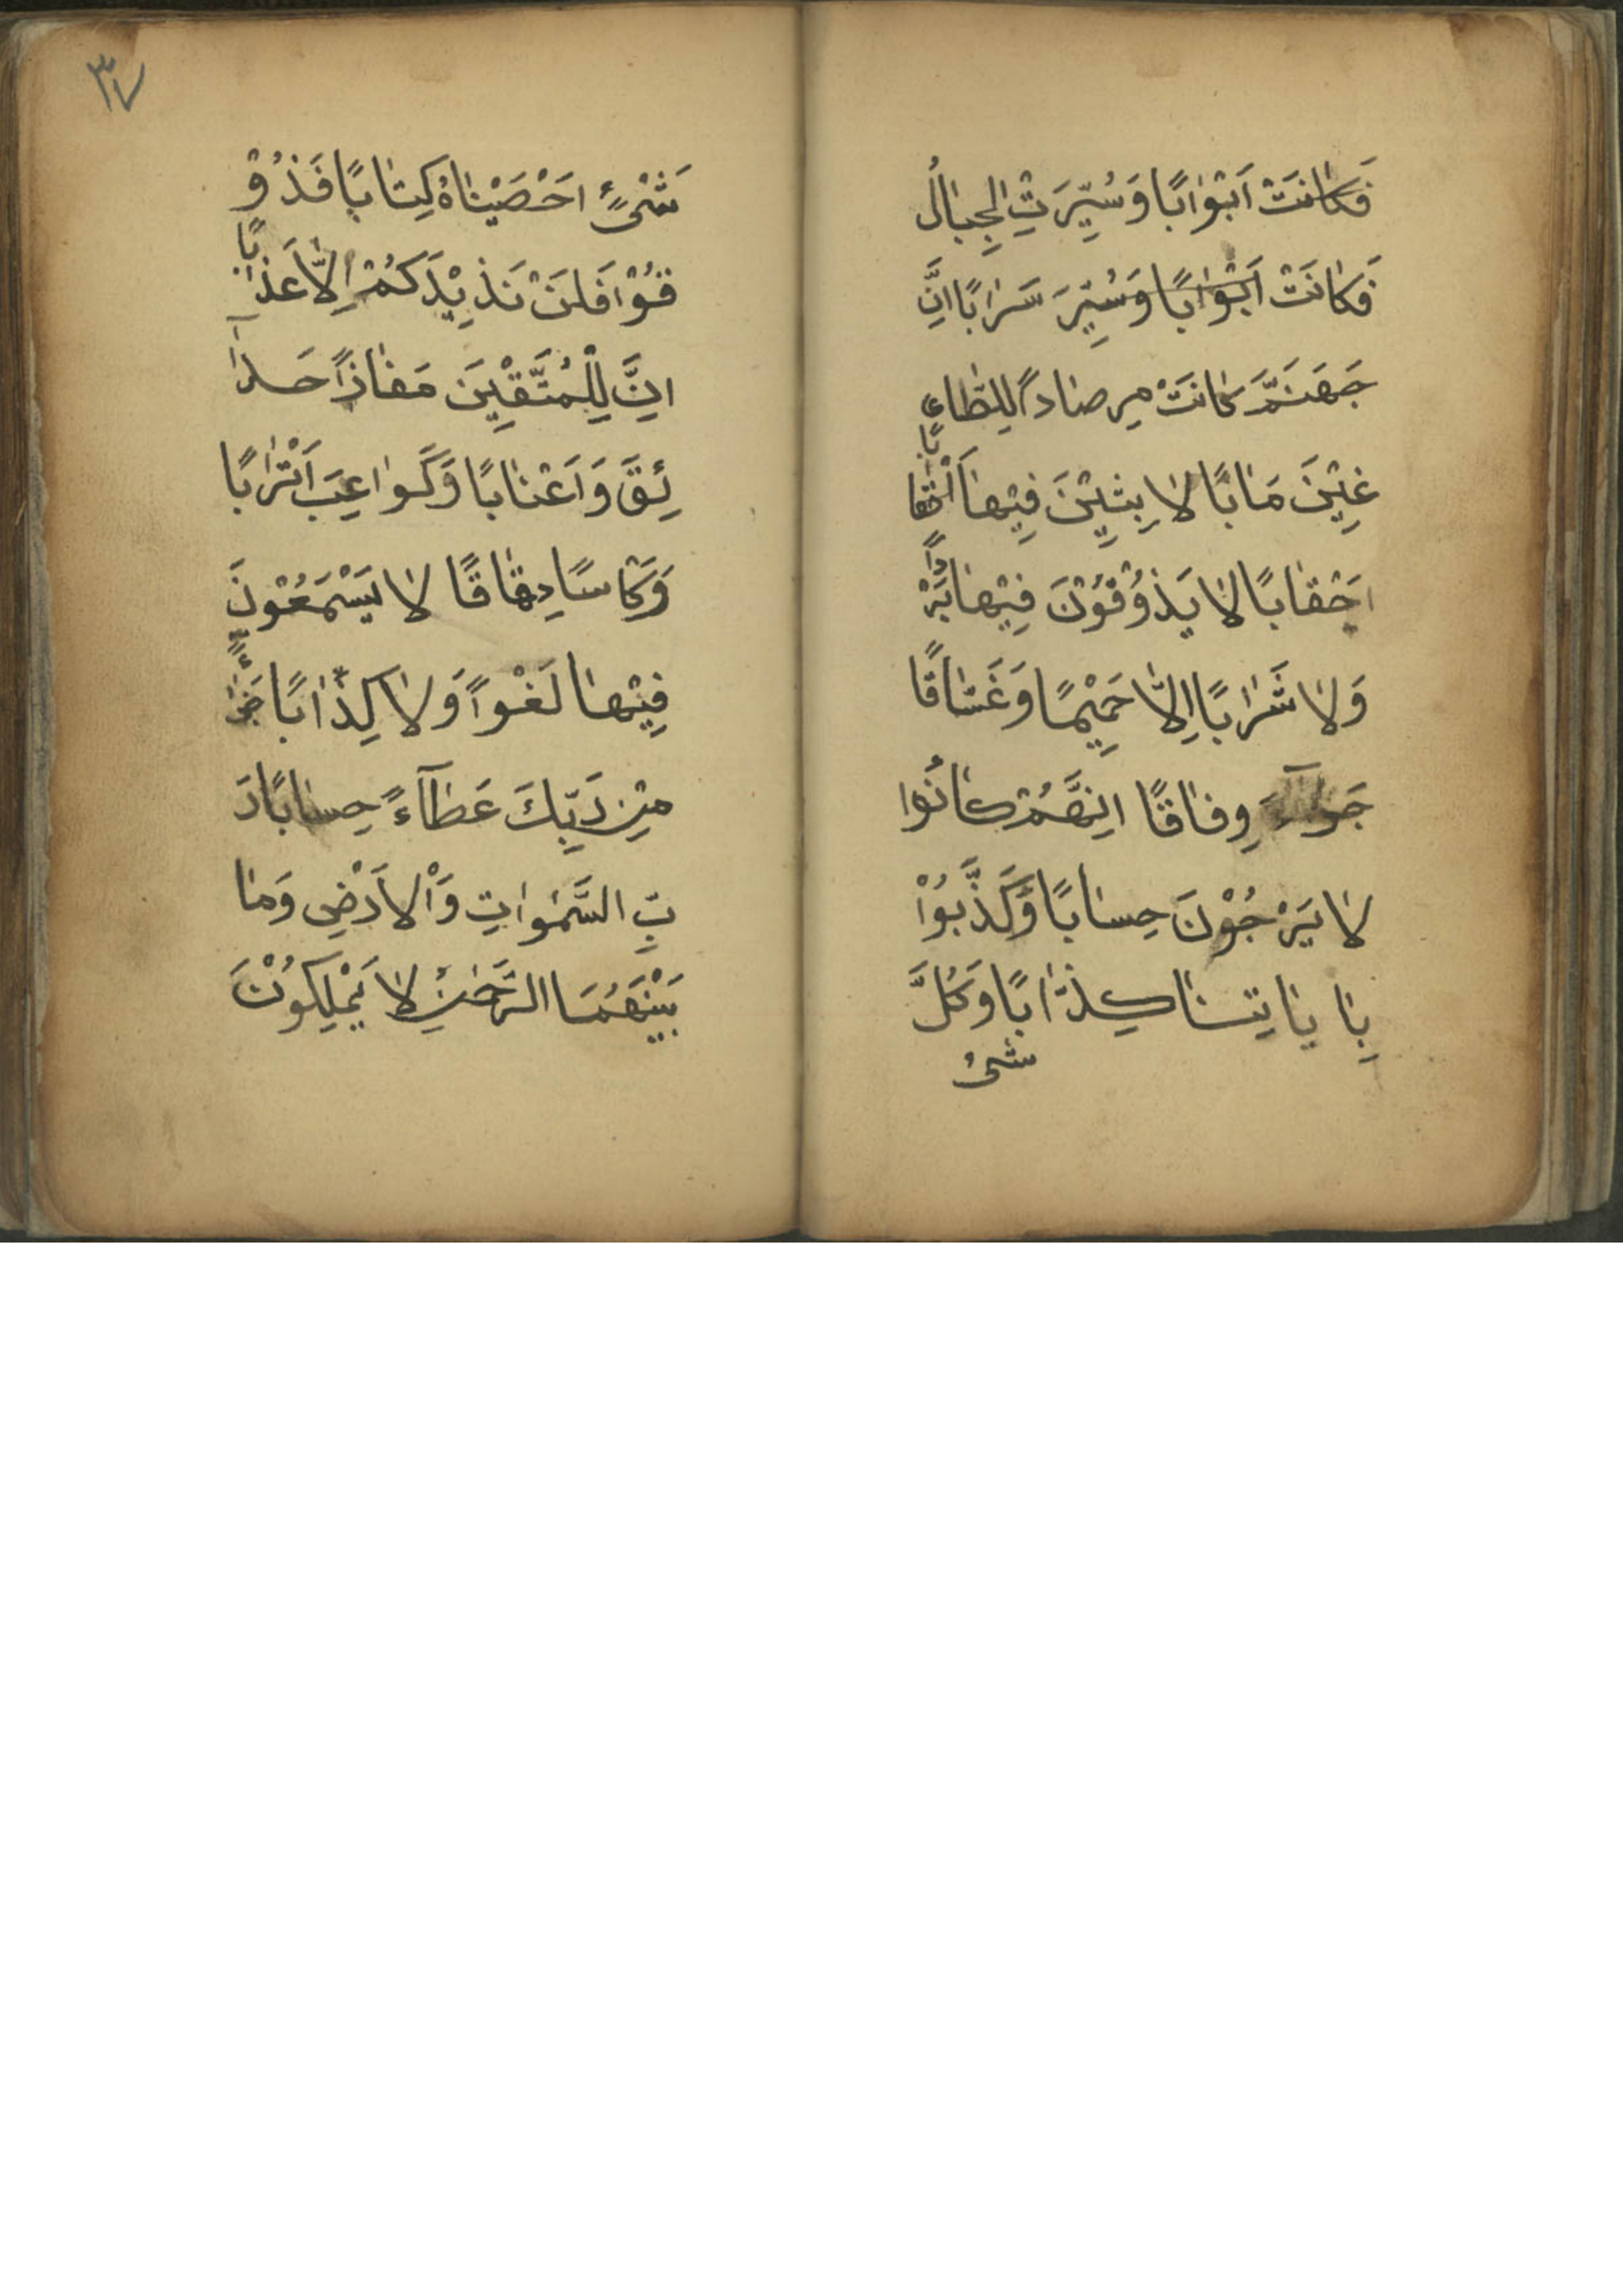 فَكٰانَتْ اَبْوٰابًا وَسُيِّرَتِ الْجِبٰالُ
فَكٰانَتْ اَبْوٰابًا وَسُيِّرَ سَرٰابًا اِنَّ
جَهَنَّمَ كٰانَتْ مِرصٰاداً لِلطّٰا
غِيْنَ مَاٰبًا لاٰبِثِيْنَ فِيْهٰا
اَحْقٰابًا لاٰ يَذُوْقُوْنَ فِيْهٰا بَرْداً
وَلاٰ شَرٰابًا اِلاّٰ حَمِيْمًا وَغَسّٰاقًا
جَزٰآءً وِفٰاقًا اِنَّهُمْ كٰانُوا
لاٰ يَرْجُوْنَ حِسٰابًا وَكَذَّبُوْا
بِاٰيٰاتِنٰا كِذّٰابًا وَكُلَّ
شئ
٣٧
شَىْءٍ اَحْصَيْنٰاهُ كِتٰابًا فَذُوْ
قُوْا فَلَنْ نَزِيْدَكُمْ اِلاّٰ عَذٰابًا
اِنَّ لِلْمُتَّقِيْنَ مَفٰازاً حَدٰآ
ئِقَ وَاَعْنٰابًا وَكَوٰاعِبَ اَتْرٰابًا
وَكَاسًا دِهٰاقًا لاٰ يَسْمَعُوْنَ
فِيْهٰا لَغْواً وَلاٰ كِذّٰابًا جَزٰآءً
مِنْ رَبِّكَ عَطٰآءً حِسٰابًا رَ
بِّ السَّمٰوٰاتِ وَالْاَرْضِ وَمٰا
بَيْنَهُمَا الرَّحْمٰنِ لاٰ يَمْلِكُوْنَ